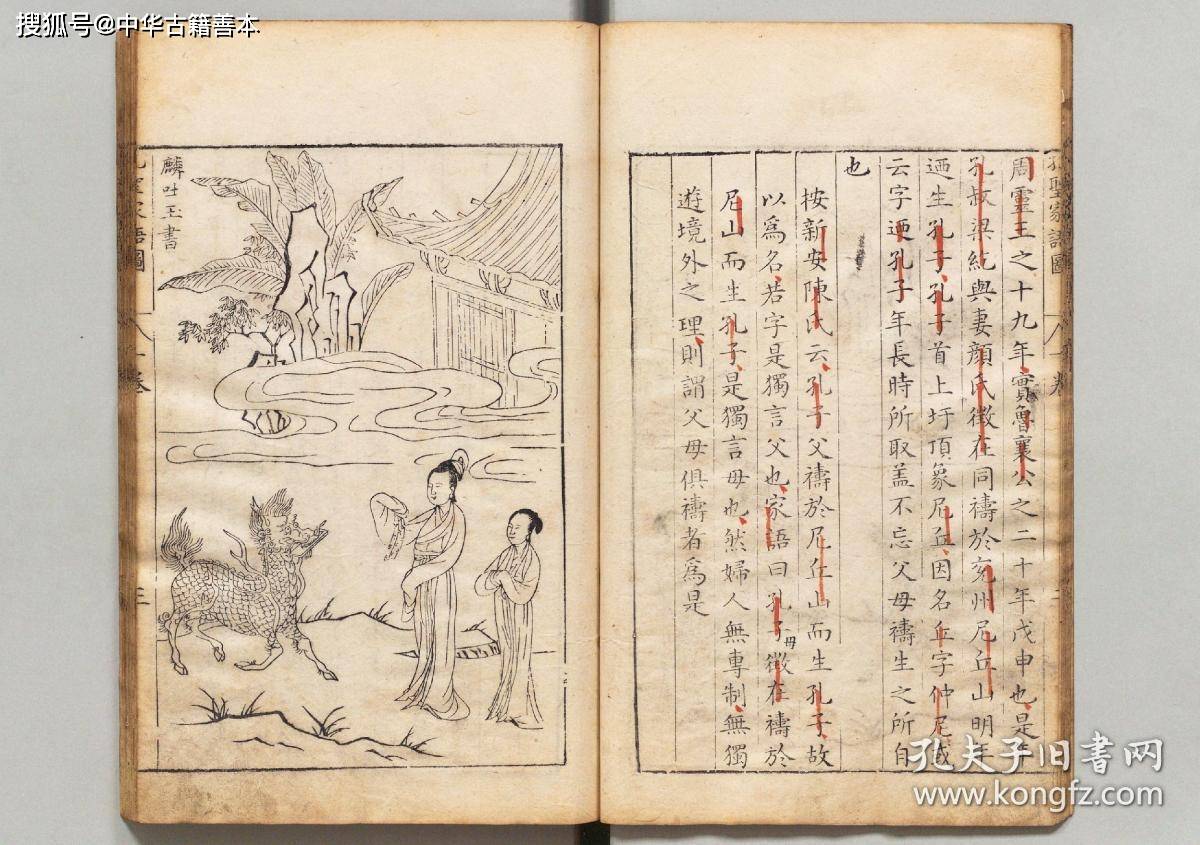 搜狐号@中华古籍善本
周靈王之十九年實魯襄公之二十年戊申也是年
孔叔梁紇與妻顔氏徵在同禱於兗州尼丘山明年
迺生孔子孔子首上圩頂象尼丘因名丘字仲尼或
云字迺孔子年長時所取盖不忘父母禱生之所自
也
按新安陳氏云孔子父禱於尼丘山而生孔子故
以爲名若字是獨言父也家語曰孔子母徵在禱於
尼山而生孔子是獨言母也然婦人無專制無獨
遊境外之理則謂父母俱禱者爲是
聖家語圖
一卷
麟吐玉書
家語圖
一卷
三
孔夫子旧书网
www.kongfz.com